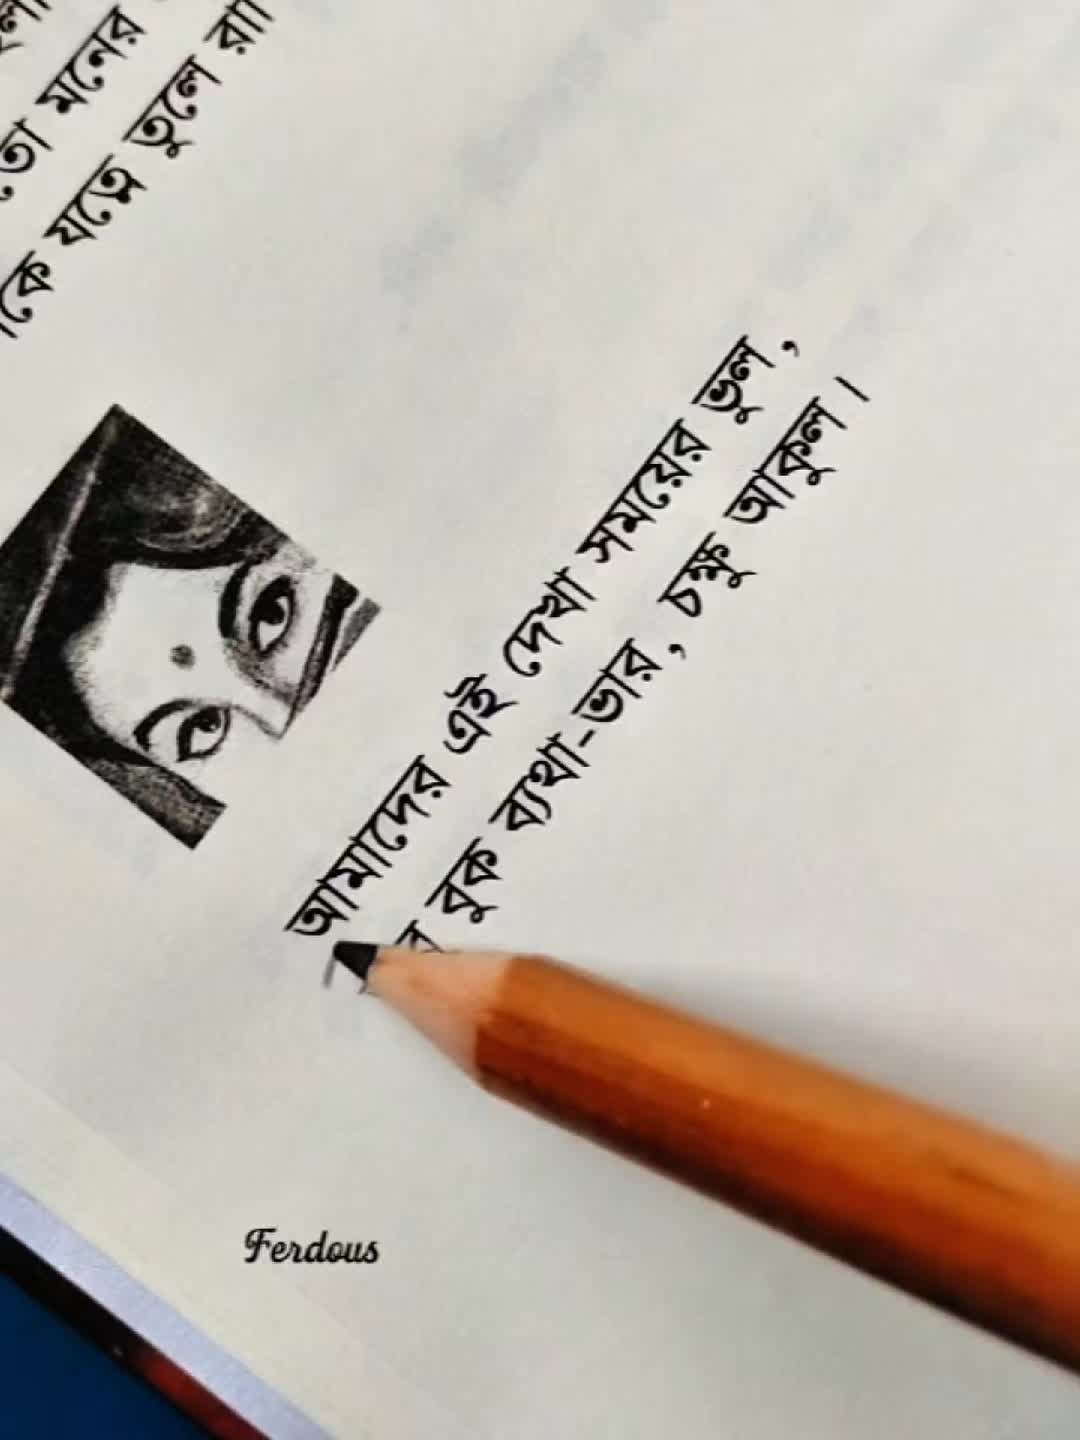 তো মনের
কে যত্নে তুলে রা
আমাদের এই দেখা সময়ের ভুল ,
বুক ব্যথা-ভার , চক্ষু আকুল ।
Ferdous